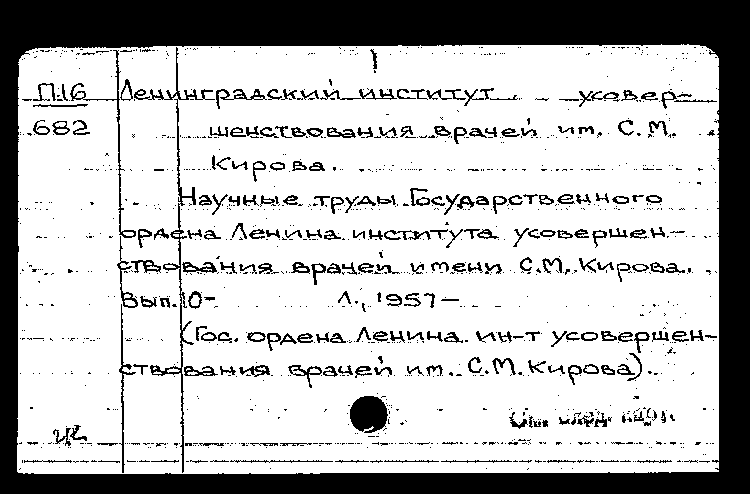 П16 Ленинградский институт усовер-
682 шенствования врачей им. С.М.
Кирова.
Научные труды Государственного
ордена Ленина института усовершен-
ствования врачей имени С.М. Кирова.
Вып. 10- Л., 1957-
(Гос. ордена Ленина ин-т усовершен-
ствования врачей им. С.М. Кирова).
См. след. карт.